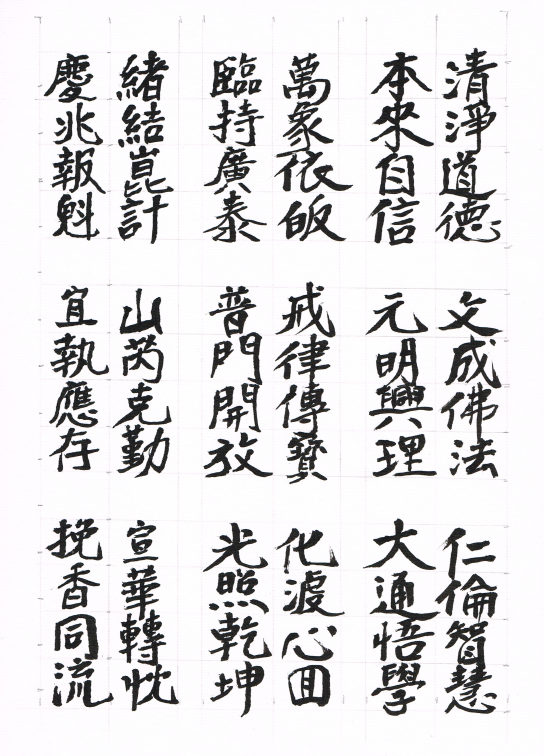 清淨道德 文成佛法 仁倫智慧
本來自信 元明興理 大通悟學
萬象依皈 戒律傳寶 化渡心回
臨持廣泰 普門開放 光照乾坤
緒結崑計 山芮克勤 宣華轉忱
慶兆報魁 宜執應存 挽香同流